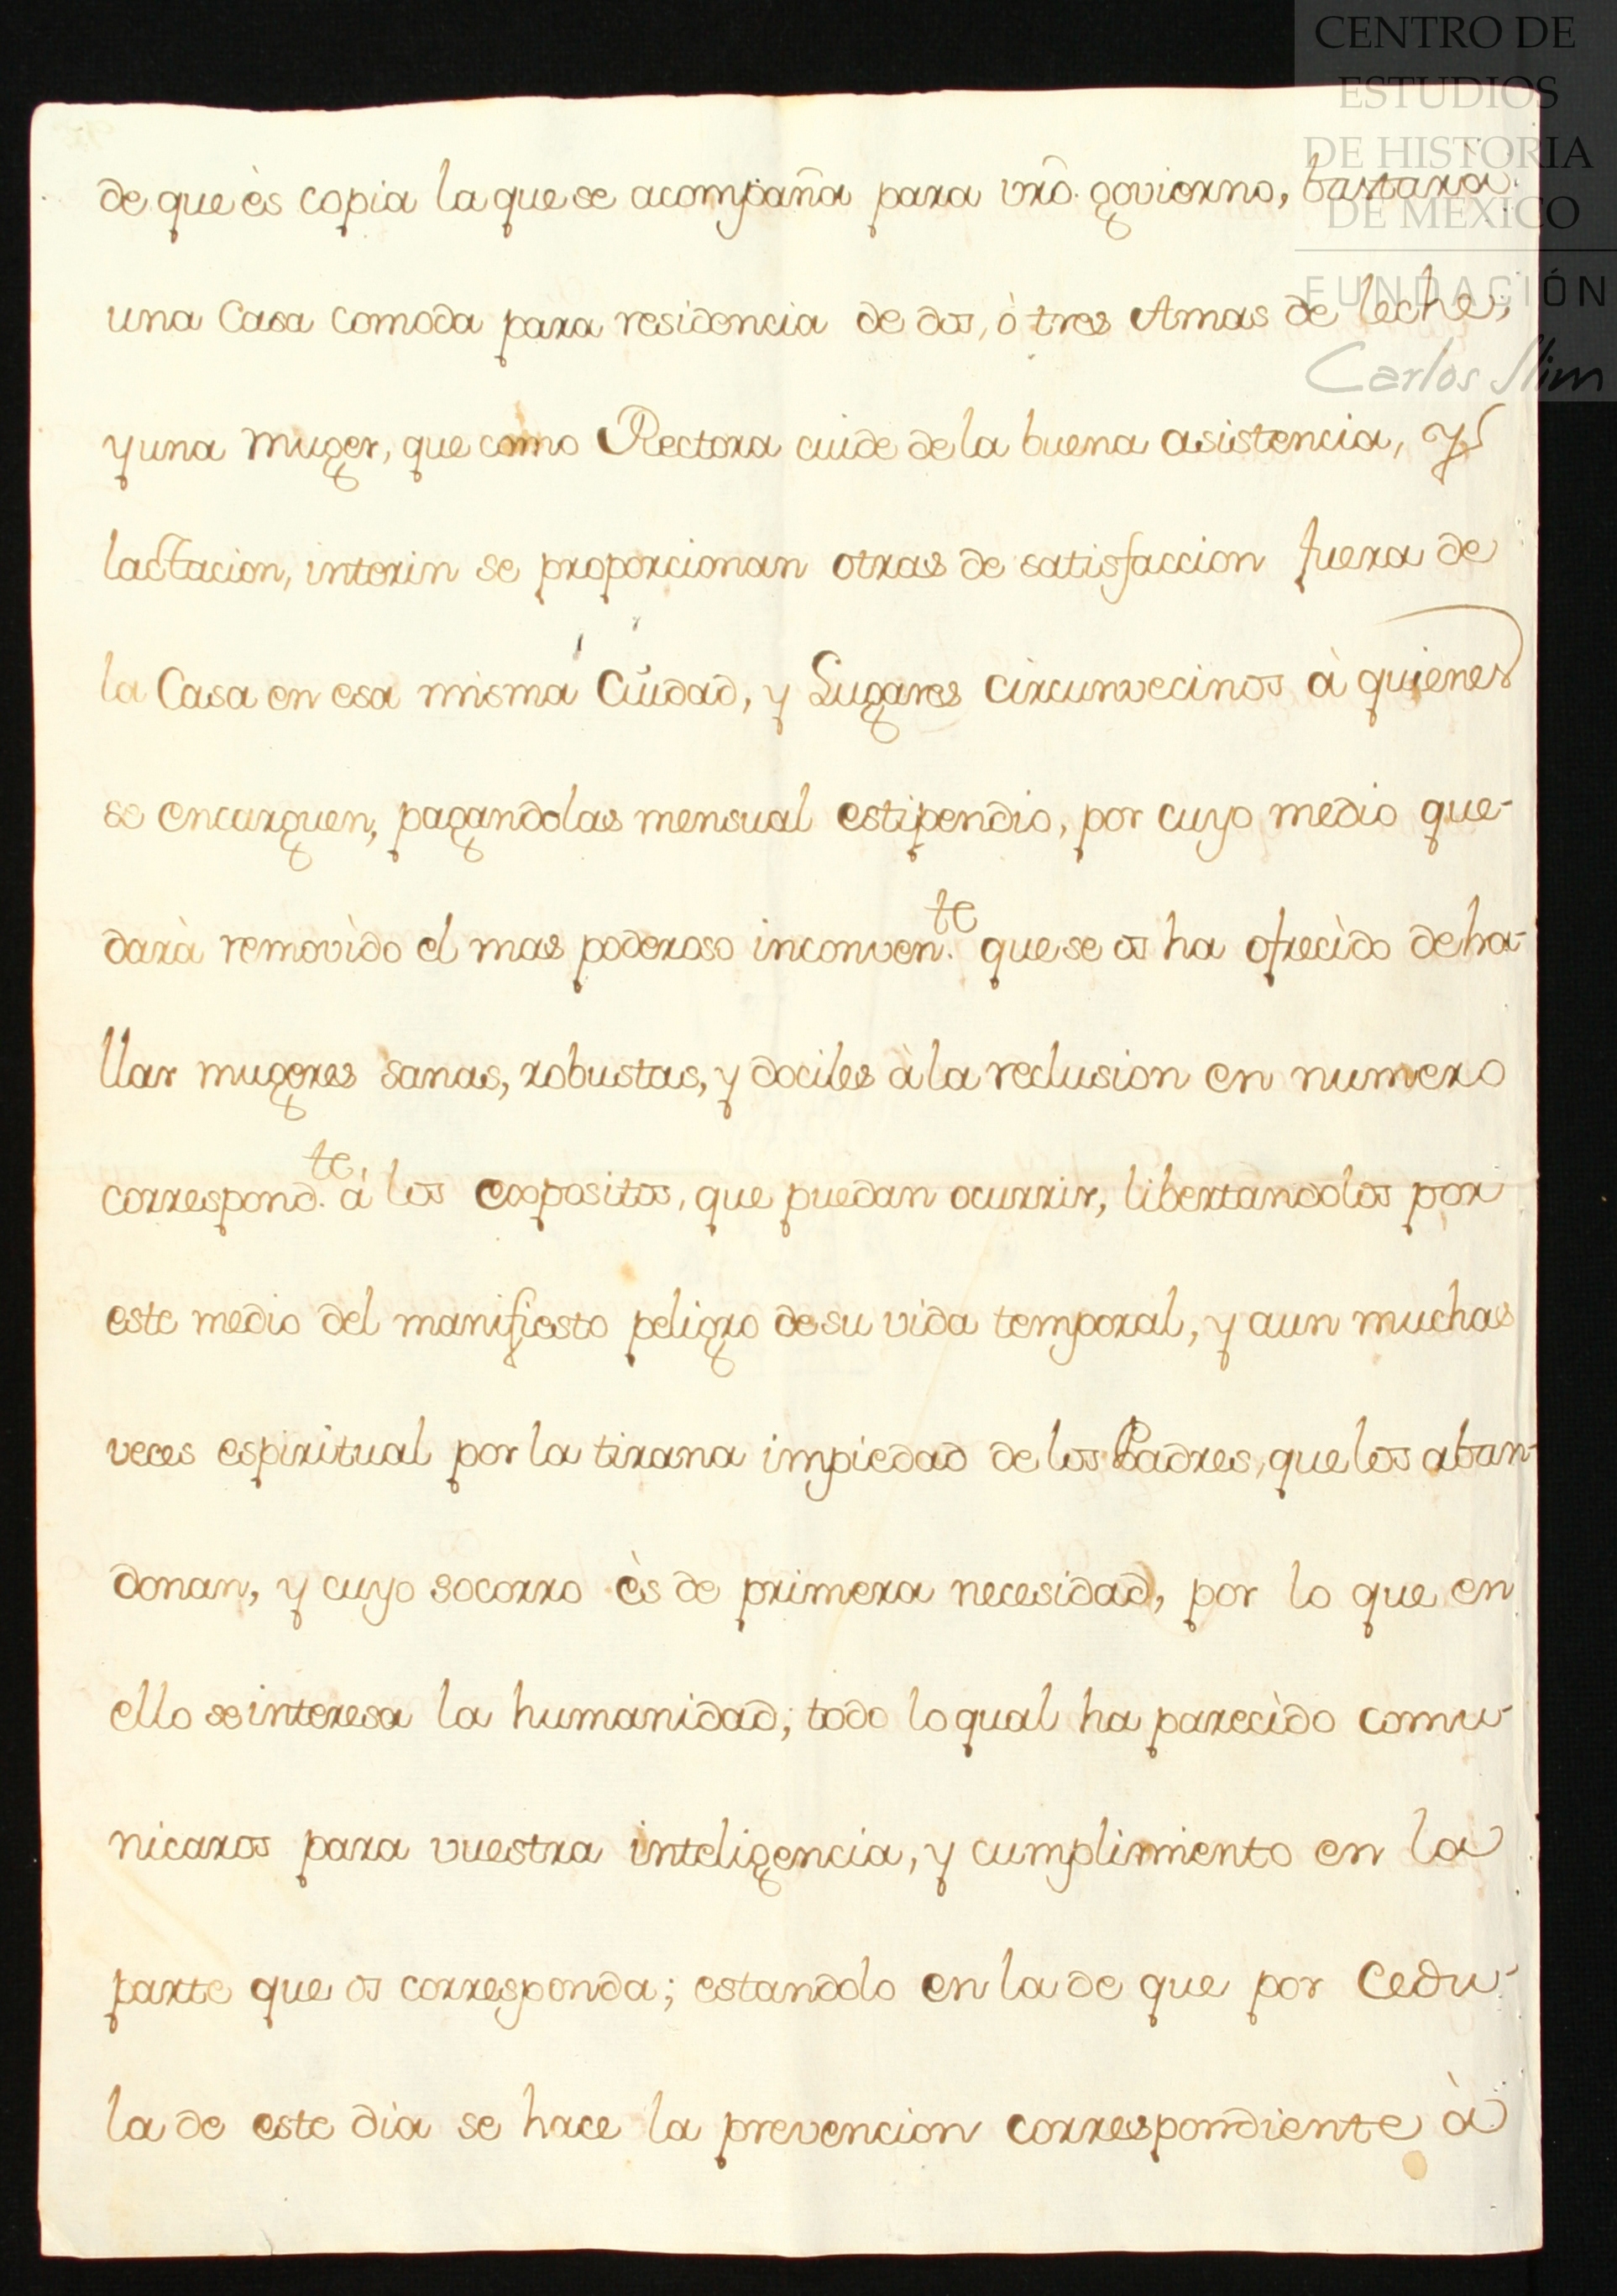 CENTRO DE
ESTUDIOS
DE HISTORIA
DE MÉXICO
FUNDACIÓN
Carlos Slim
de que ès copia la que se acompaña para vrõ. govierno, bastara
una Casa comoda para residencia de dos, ò tres Amas de leche,
y una muger, que como Rectora cuide de la buena asistencia, y
lactacion, interin se proporcionan otras de satisfaccion fuera de
la Casa en esa misma Ciudad, y Lugares circunvecinos à quienes
se encarguen, pagandolas mensual estipendio, por cuyo medio que-
darà removìdo el mas poderoso inconven.te que se os ha ofrecìdo de ha-
llar mugeres sanas, robustas, y dociles à la reclusion en numero
correspond.te à los expositos, que puedan ocurrir, libertandolos por
este medio del manifiesto peligro de su vida temporal, y aun muchas
veces espiritual por la tirana impiedad de los Padres, que los aban-
donan, y cuyo socorro ès de primera necesidad, por lo que en
ello se interesa la humanidad; todo lo qual ha parecìdo comu-
nicaros para vuestra inteligencia, y cumplimiento en la
parte que os corresponda; estandolo en la de que por Cedu-
la de este dia se hace la prevencion correspondiente à